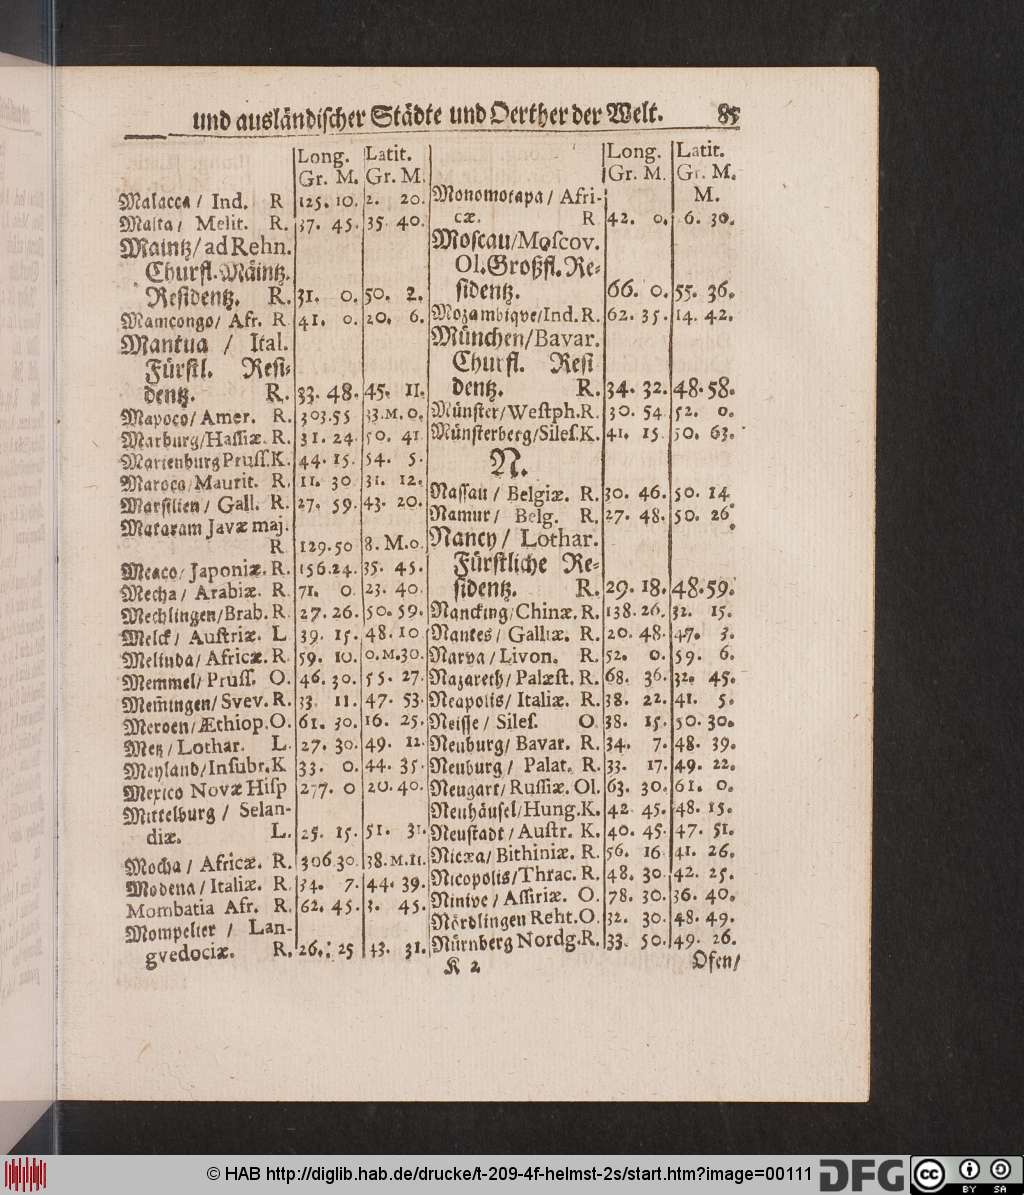 und ausländischer Städte und Oerther der Welt. 85
Long. Latit.
Gr. M. Gr. M.
Malacca / Ind. R 125. 10. 2. 20.
Malta / Melit. R. 37. 45. 35. 40.
Maintz / ad Rehn.
Churfl. Mäintz.
Residentz. R. 31. 0. 50. 2.
Mamcongo / Afr. R 41. 0. 20. 6.
Mantua / Ital.
Fürstl. Resi-
dentz. R. 33. 48. 45. 11.
Mapoco / Amer. R. 303.55 33.M.0.
Marburg/Hassiæ. R. 31. 24. 50. 41
Marienburg Pruss.K. 44. 15. 54. 5.
Maroco/Maurit. R. 11. 30 31. 12.
Marsilien / Gall. R. 27. 59. 43. 20.
Mataram Javæ maj.
R 129.50 8.M.0.
Meaco / Japoniæ. R. 156.24. 35. 45.
Mecha / Arabiæ. R. 71. 0 23. 40.
Mechlingen/Brab. R. 27. 26. 50. 59.
Melck / Austriæ. L 39. 15. 48. 10
Melinda / Africæ. R. 59. 10. 0.M.30.
Memmel / Pruss. O. 46. 30. 55. 27.
Mem̄ingen/Svev. R. 33 11. 47. 53.
Meroen/Æthiop.O. 61. 30. 16. 25.
Metz / Lothar. L. 27. 30. 49. 12.
Meyland/Insubr.K 33. 0. 44. 35.
Mexico Novæ Hisp 277. 0 20. 40.
Mittelburg / Selan-
diæ. L. 25. 15. 51. 31.
Mocha / Africæ. R. 306.30. 38.M.11.
Modena / Italiæ. R. 34. 7. 44. 39.
Mombatia Afr. R. 62. 45. 3. 45.
Mompelier / Lan-
gvedociæ. R. 26. 25 43. 31.
Long. Latit.
Gr. M. Gr. M.
Monomotapa / Afri- M.
cæ. R 42. 0. 6. 30.
Moscau/Moscov.
Ol. Großfl. Re-
sidentz. 66. 0. 55. 36.
Mozambiqve/Ind. R. 62. 35. 14. 42.
München/Bavar.
Churfl. Resi
dentz. R. 34. 32. 48. 58.
Münster/Westph.R. 30. 54 52. 0.
Münsterberg/Siles.K. 41. 15 50. 63.
N.
Nassau / Belgiæ. R. 30. 46. 50. 14
Namur / Belg. R. 27. 48. 50. 26.
Nancy / Lothar.
Fürstliche Re-
sidentz. R. 29. 18. 48. 59.
Nancking/Chinæ. R. 138. 26. 32. 15.
Nantes / Galliæ. R. 20. 48. 47. 3.
Narva / Livon. R. 52. 0. 59. 6.
Nazareth / Palæst. R. 68. 36. 32. 45.
Neapolis / Italiæ. R. 38. 22. 41. 5.
Neisse / Siles. O 38. 15. 50. 30.
Neuburg / Bavar. R. 34. 7. 48. 39.
Neuburg / Palat. R. 33. 17. 49. 22.
Neugart / Russiæ. Ol. 63. 30. 61. 0.
Neuhäusel/Hung.K. 42 45. 48. 15.
Neustadt / Austr. K. 40. 45. 47. 51.
Nicæa / Bithiniæ. R. 56. 16 41. 26.
Nicopolis/Thrac. R. 48. 30 42. 25.
Ninive / Assiriæ. O. 78. 30 36. 40.
Nördlingen Reht.O. 32. 30. 48. 49.
Nürnberg Nordg.R. 33. 50. 49. 26.
K 2 Ofen/
© HAB http://diglib.hab.de/drucke/t-209-4f-helmst-2s/start.htm?image=00111 DFG cc BY SA